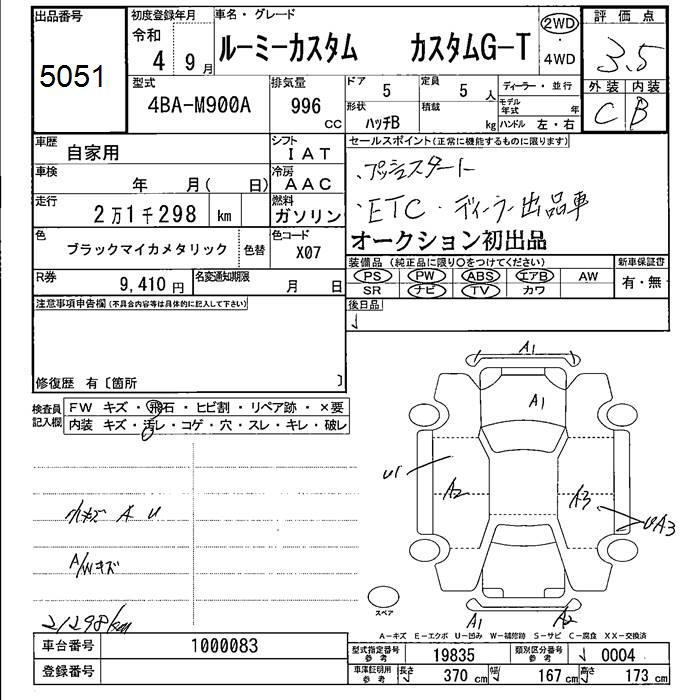 出品番号
5051
初度登録年月
令和
4 9月
車名・グレード
ルーミーカスタム カスタムG-T
2WD
・
4WD
評価点
3.5
外装 内装
C B
型式
4BA-M900A
排気量
996
cc
ドア
5
定員
5 人
形状
ハッチB
積載
kg
ディーラー・並行
モデル年式 年
ハンドル 左・右
車歴
自家用
シフト
IAT
車検
年 月( 日)
冷房
AAC
走行
2万1千298 km
燃料
ガソリン
色
ブラックマイカメタリック
色替
色コード
X07
R券
9,410円
名変通知期限
月 日
セールスポイント(正常に機能するものに限ります)
・プッシュスタート
・ETC・ディーラー出品車
オークション初出品
装備品(純正品に限り○をつけてください)
PS PW ABS エアB AW
SR ナビ TV カワ
新車保証書
有・無
後日品
注意事項申告欄(不具合内容等は具体的に記入して下さい)
修復歴 有〔箇所 〕
検査員記入欄
FW キズ・飛石・ヒビ割・リペア跡・×要
内装 キズ・汚レ・コゲ・穴・スレ・キレ・破レ
小キズ A U
A/Wキズ
21298km
A1
A1
U1
A2
A3
UA3
A1
A2
スペア
A-キズ E-エクボ U-凹み W-補修跡 S-サビ C-腐食 XX-交換済
車台番号
1000083
登録番号
型式指定番号
参考
19835
類別区分番号
参考
0004
車庫証明用
参考
長さ
370 cm
幅
167 cm
高さ
173 cm